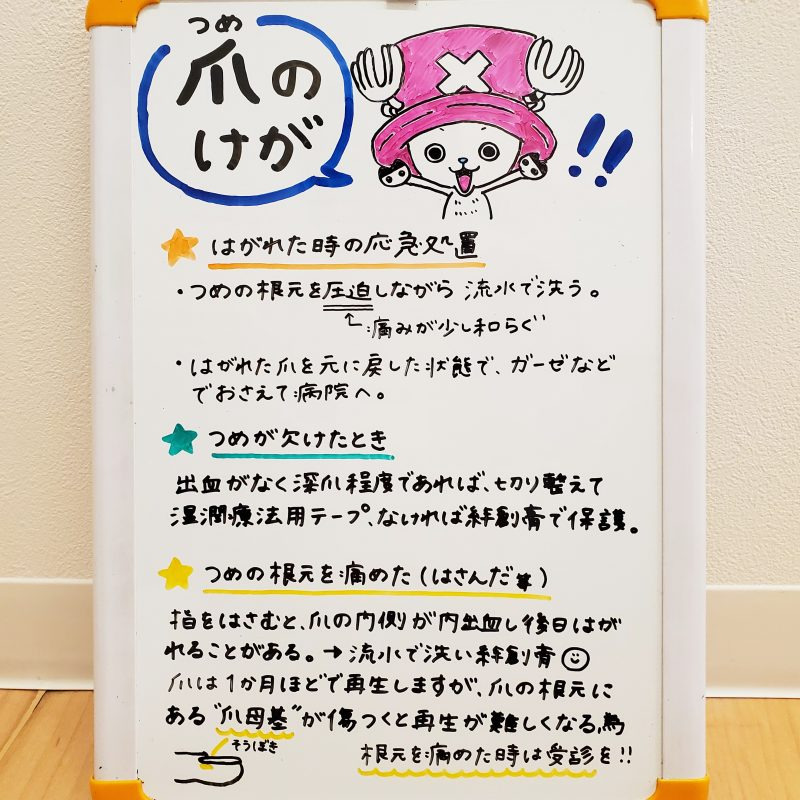 つめ
爪の
けが
!!
はがれた時の応急処置
・つめの根元を圧迫しながら 流水で洗う。
痛みが少し和らぐ
・はがれた爪を元に戻した状態で、ガーゼなど
でおさえて病院へ。
つめが欠けたとき
出血がなく深爪程度であれば、切り整えて
湿潤療法用テープ、なければ絆創膏で保護。
つめの根元を痛めた(はさんだ等)
指をはさむと、爪の内側が内出血し後日はが
れることがある。→流水で洗い絆創膏
爪は1か月ほどで再生しますが、爪の根元に
ある"爪母基"が傷つくと再生が難しくなる為
そうぼき
根元を痛めた時は受診を!!